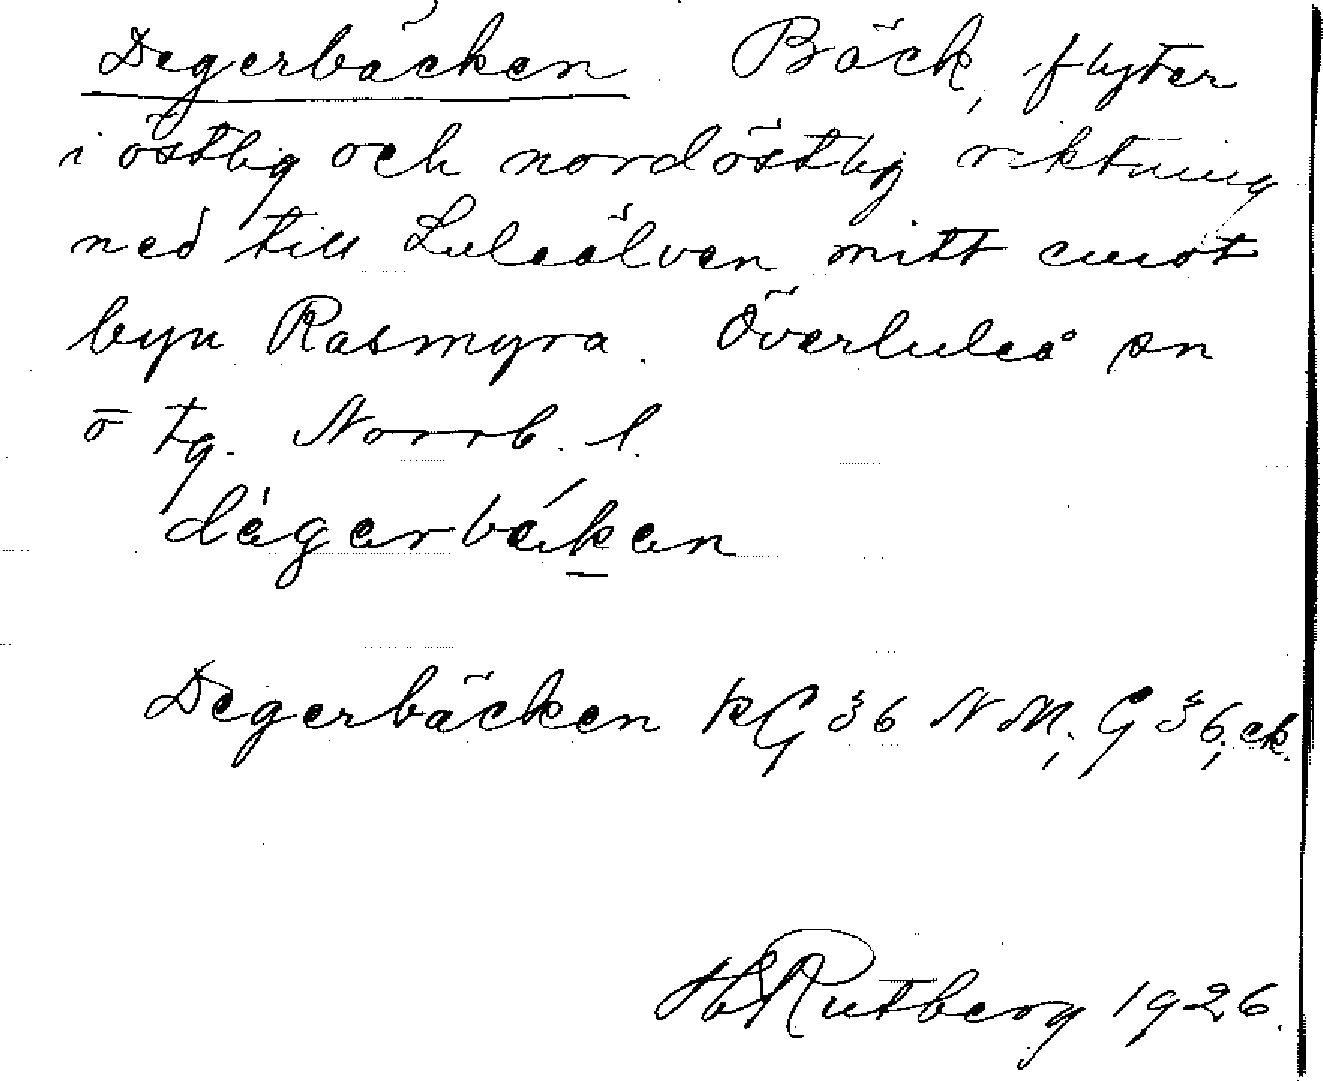 Degerbäcken Bäck, flyter
i östlig och nordöstlig riktning
ned till Luleälven mitt emot
byn Rasmyra. Överluleå sn
o tg. Norrb. l.
dègerbákan
Degerbäcken kG 36 NM; G 36, ek.
H Rutberg 1926.